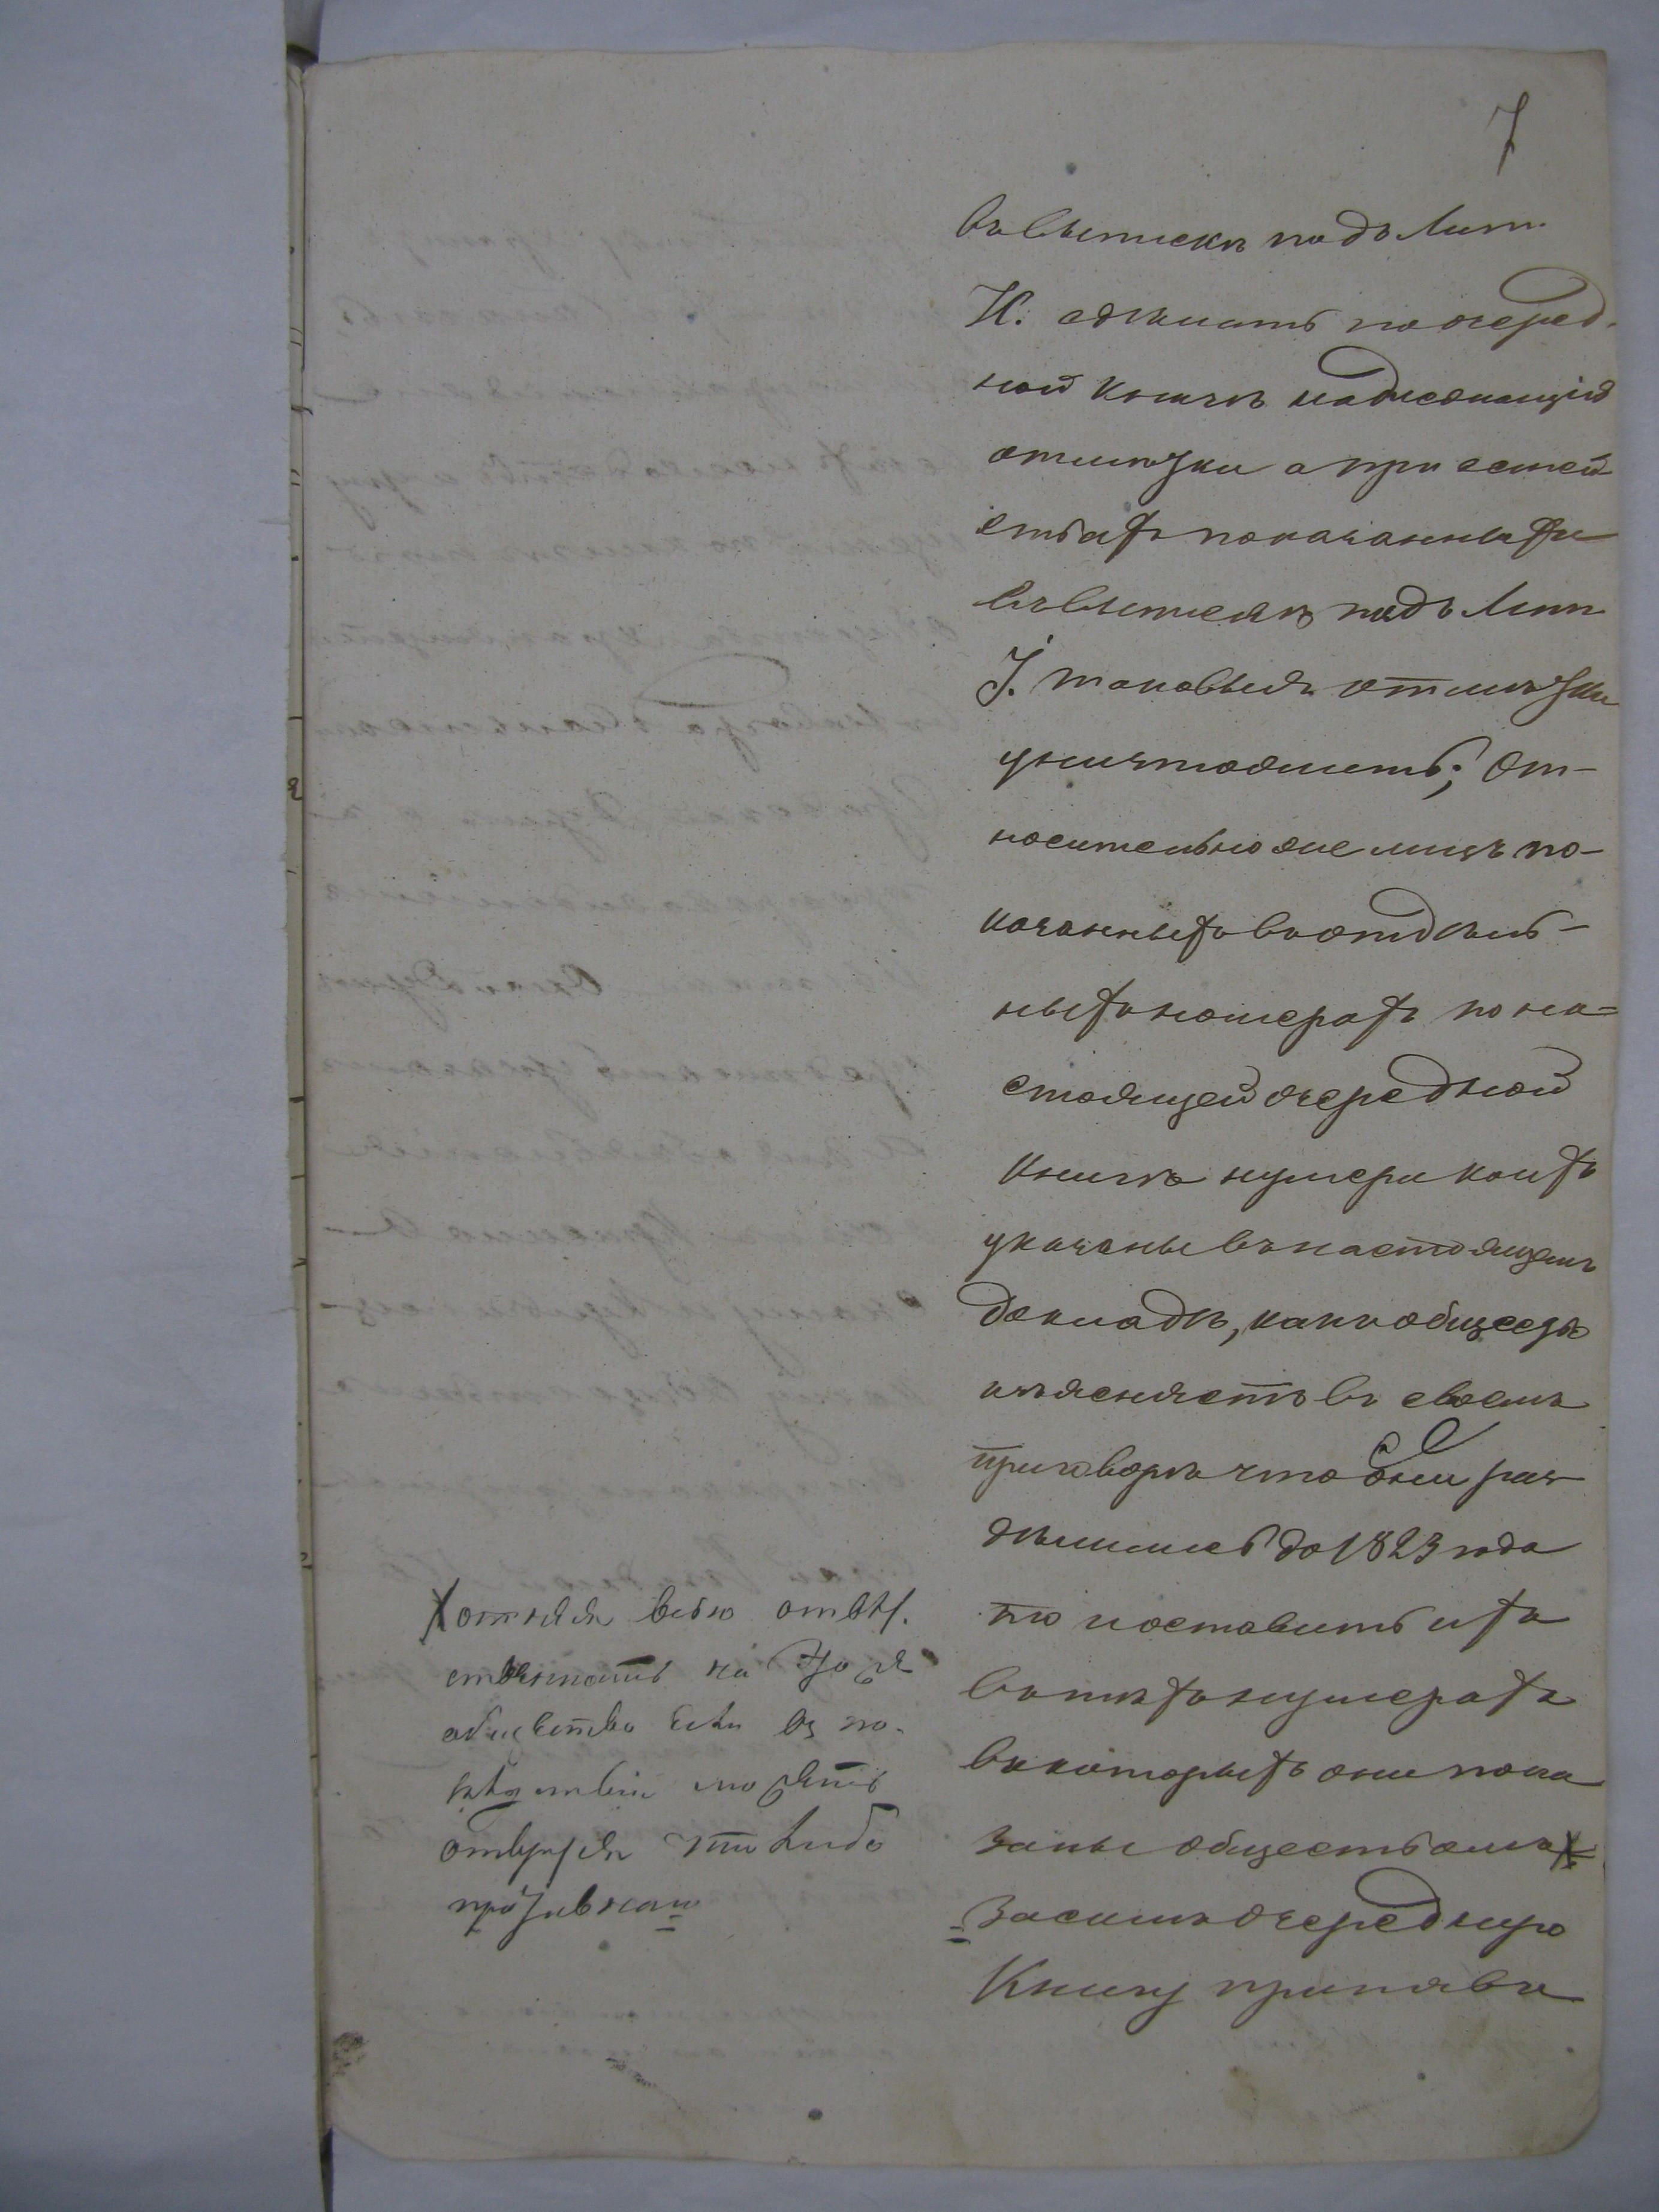 7
въ выпискѣ подъ Лит.
И. сдѣлать по очеред-
ной книгѣ надлежащія
отмѣтки а при семей-
ствахъ показанныхъ
въ выпискѣ подъ Лит
І. таковыя отмѣтки
уничтожить; От-
носительно же лицъ по-
казанныхъ въ отдѣль-
ныхъ номерахъ по на-
стоящей очередной
книгѣ нумера коихъ
указаны въ настоящемъ
докладѣ, какъ общество
изъясняетъ въ своемъ
приговорѣ что они раз-
дѣлились до 1823 года
то и оставить ихъ
въ тѣхъ нумерахъ
въ которыхъ они пока
заны обществомъ X
= Засимъ очередную
Книгу принявъ
X отнеся всю отвѣт.
ственность на
общество если въ по-
слѣдствіи можетъ
открыться что либо
противное =